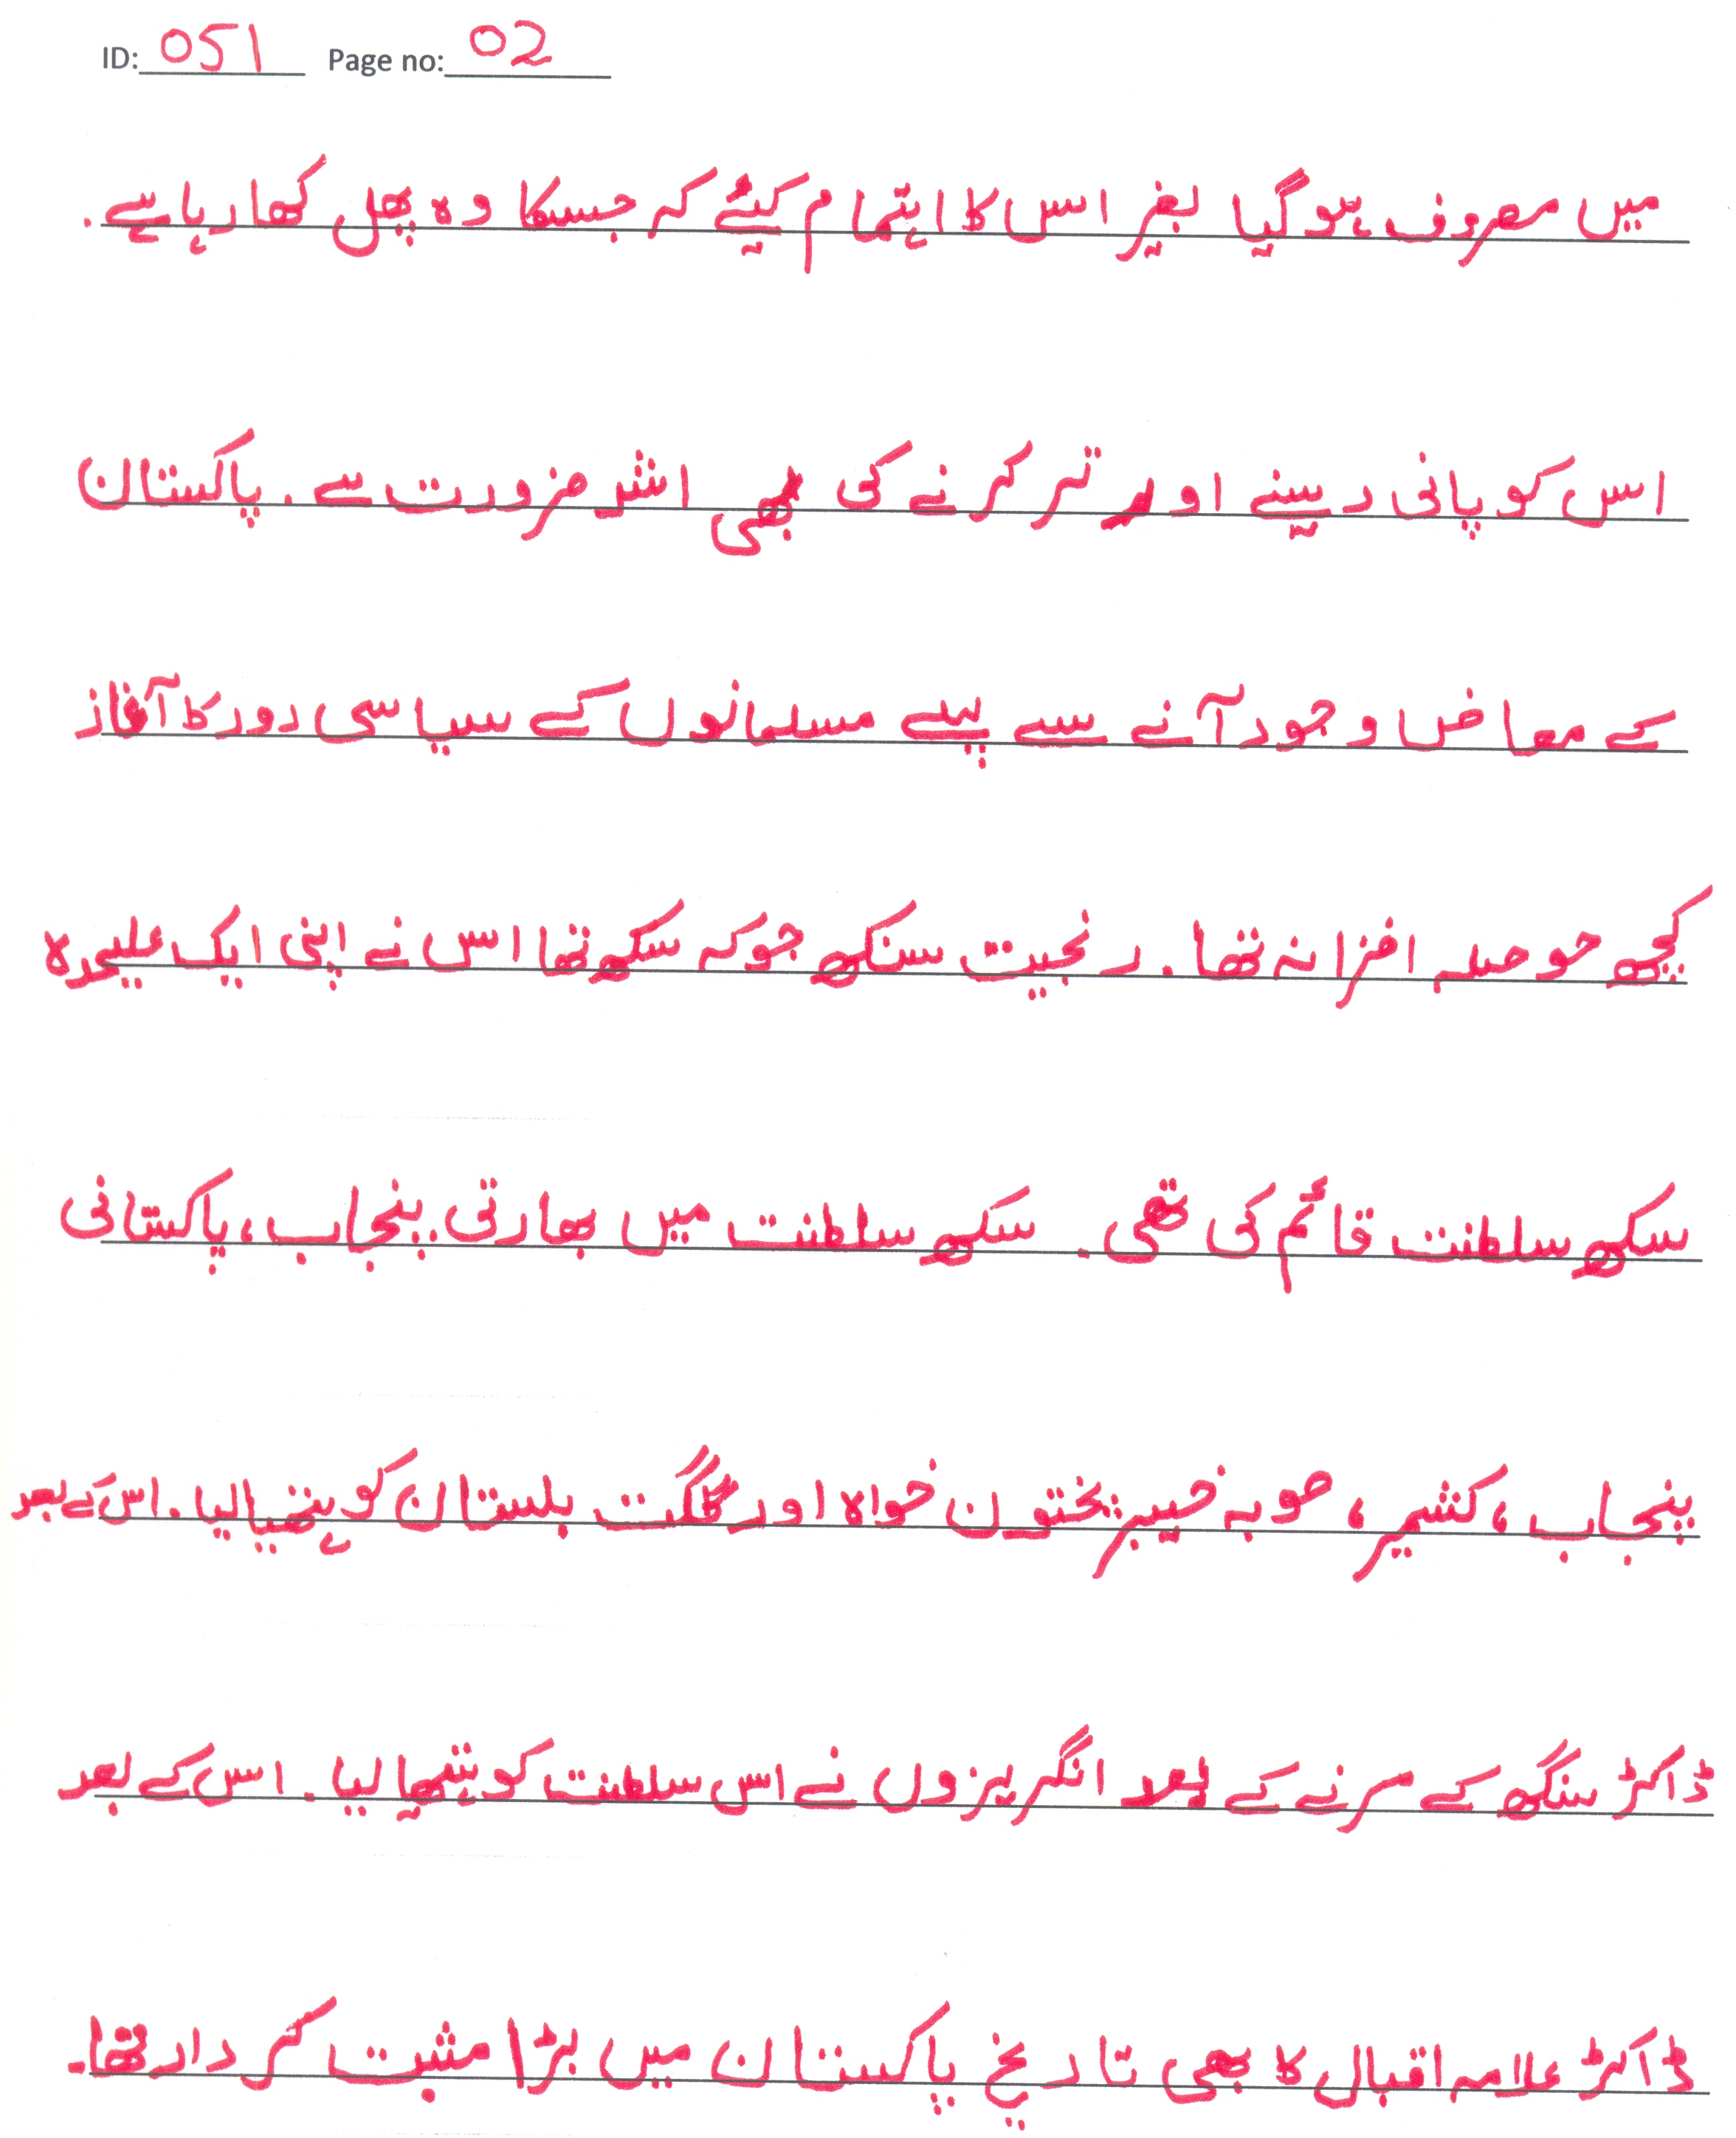 ID: 051 Page no: 02
میں مصروف ہوگیا بغیر اس کا اہتمام کیئے کہ جسکا وہ پھل کھا رہا ہے.
اس کو پانی دینے اور تر کرنے کی بھی اشر ضرورت ہے. پاکستان
کے معاض وجود آنے سے پہلے مسلمانوں کے سیاسی دور کا آغاز
کچھ حوصلہ افزا نہ تھا. رنجیت سنکھ جو کہ سکھ تھا اس نے اپنی ایک علیحدہ
سکھ سلطنت قائم کی تھی. سکھ سلطنت میں بھارتی پنجاب، پاکستانی
پنجاب، کشمیر، صوبہ خیبرپختون خواہ اور گلگت بلستان کو ہتھیا لیا. اس کے بعد
ڈاکٹر سنگھ کے مرنے کے بعد انگریزوں نے اس سلطنت کو ہتھیا لیا. اس کے بعد
ڈاکٹر علامہ اقبال کا بھی تاریخ پاکستان میں بڑا مثبت کردار تھا.